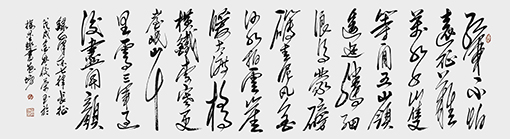 紅軍不怕
遠征難
萬水千山隻
等閒五嶺
逶迤騰細
浪烏蒙磅
礴走泥丸金
沙水拍雲崖
暖大渡橋
橫鐵索寒更
喜岷山千
里雪三軍過
後盡開顏
錄毛澤東七律長征
戊戌年